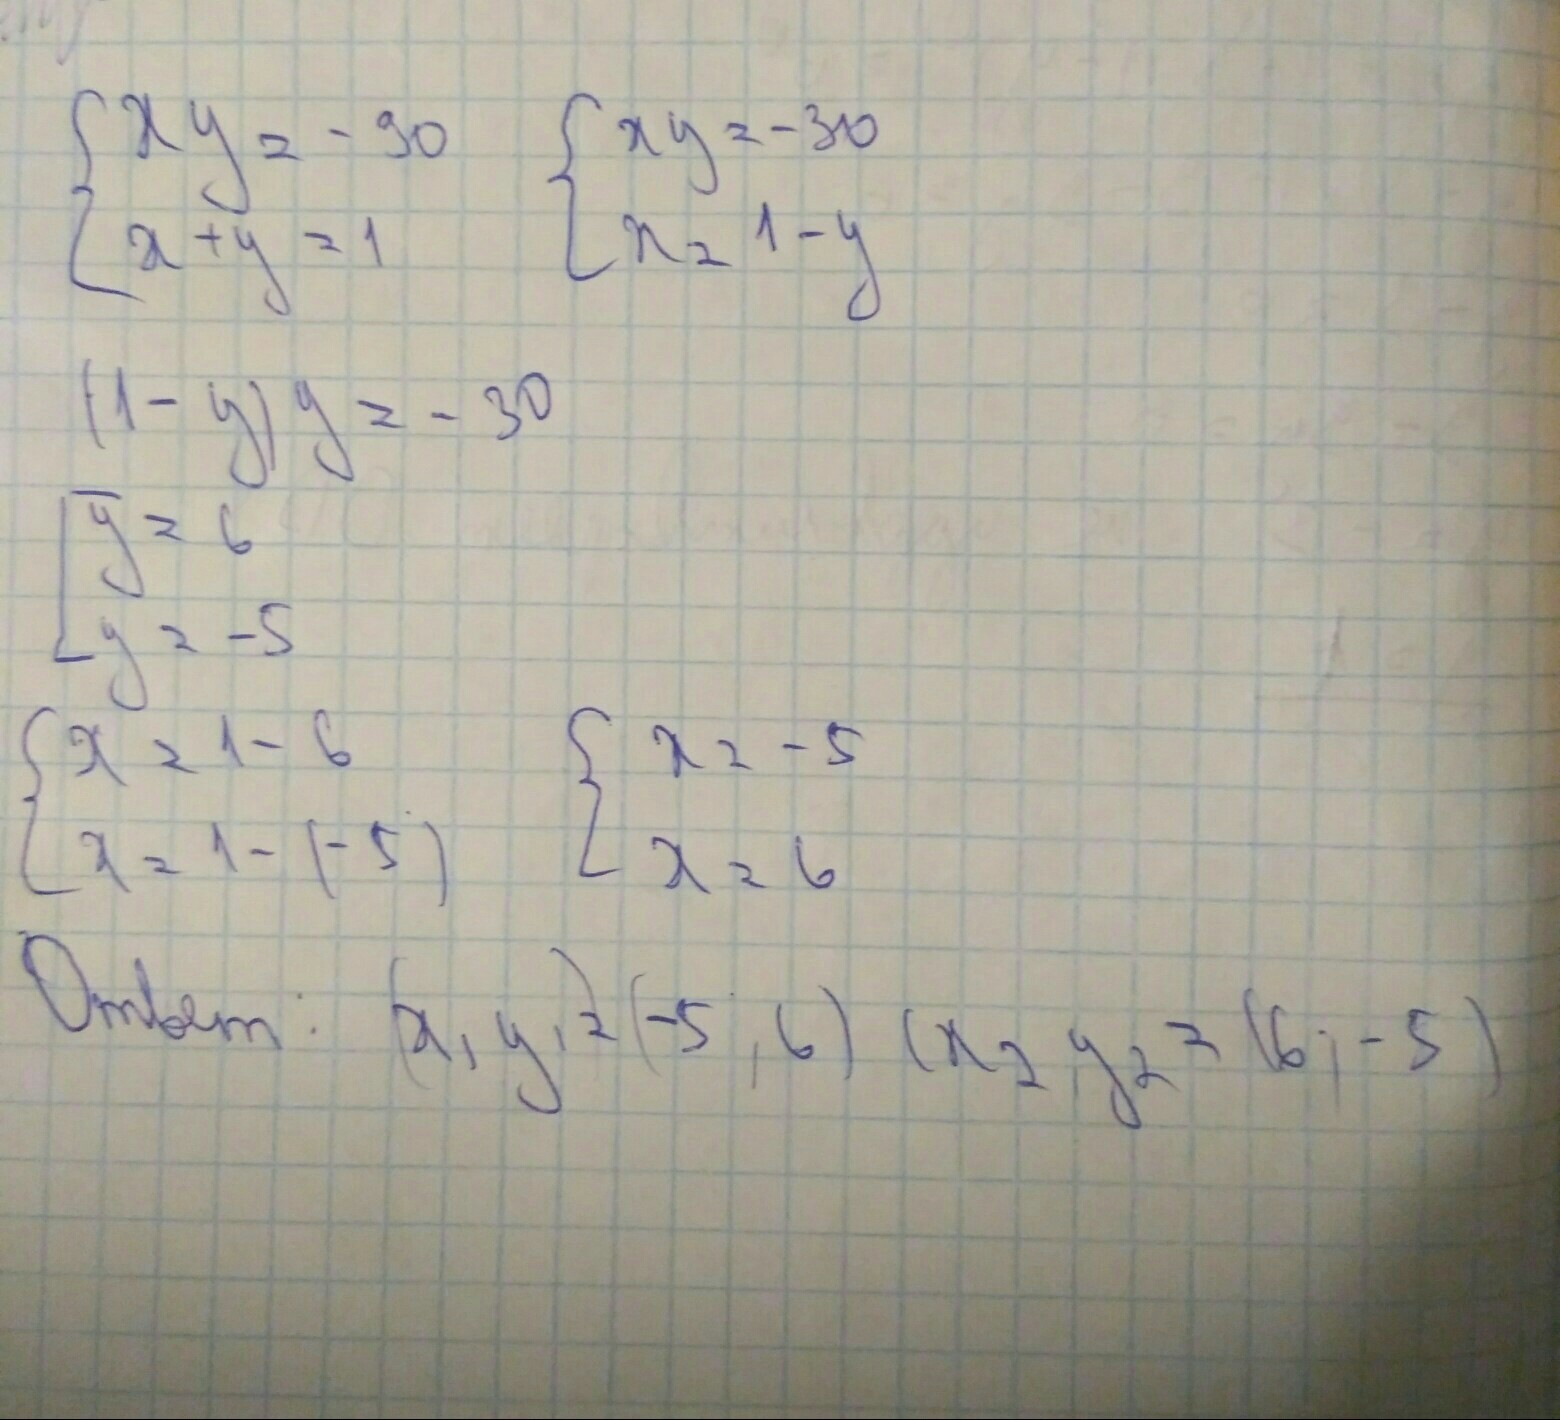 { xy = -30 { xy = -30
{ x + y = 1 { x = 1 - y
(1 - y) y = -30
[ y = 6
[ y = -5
{ x = 1 - 6 { x = -5
{ x = 1 - (-5) { x = 6
Ответ: (x₁ y₁) = (-5; 6) (x₂ y₂ = (6; -5)